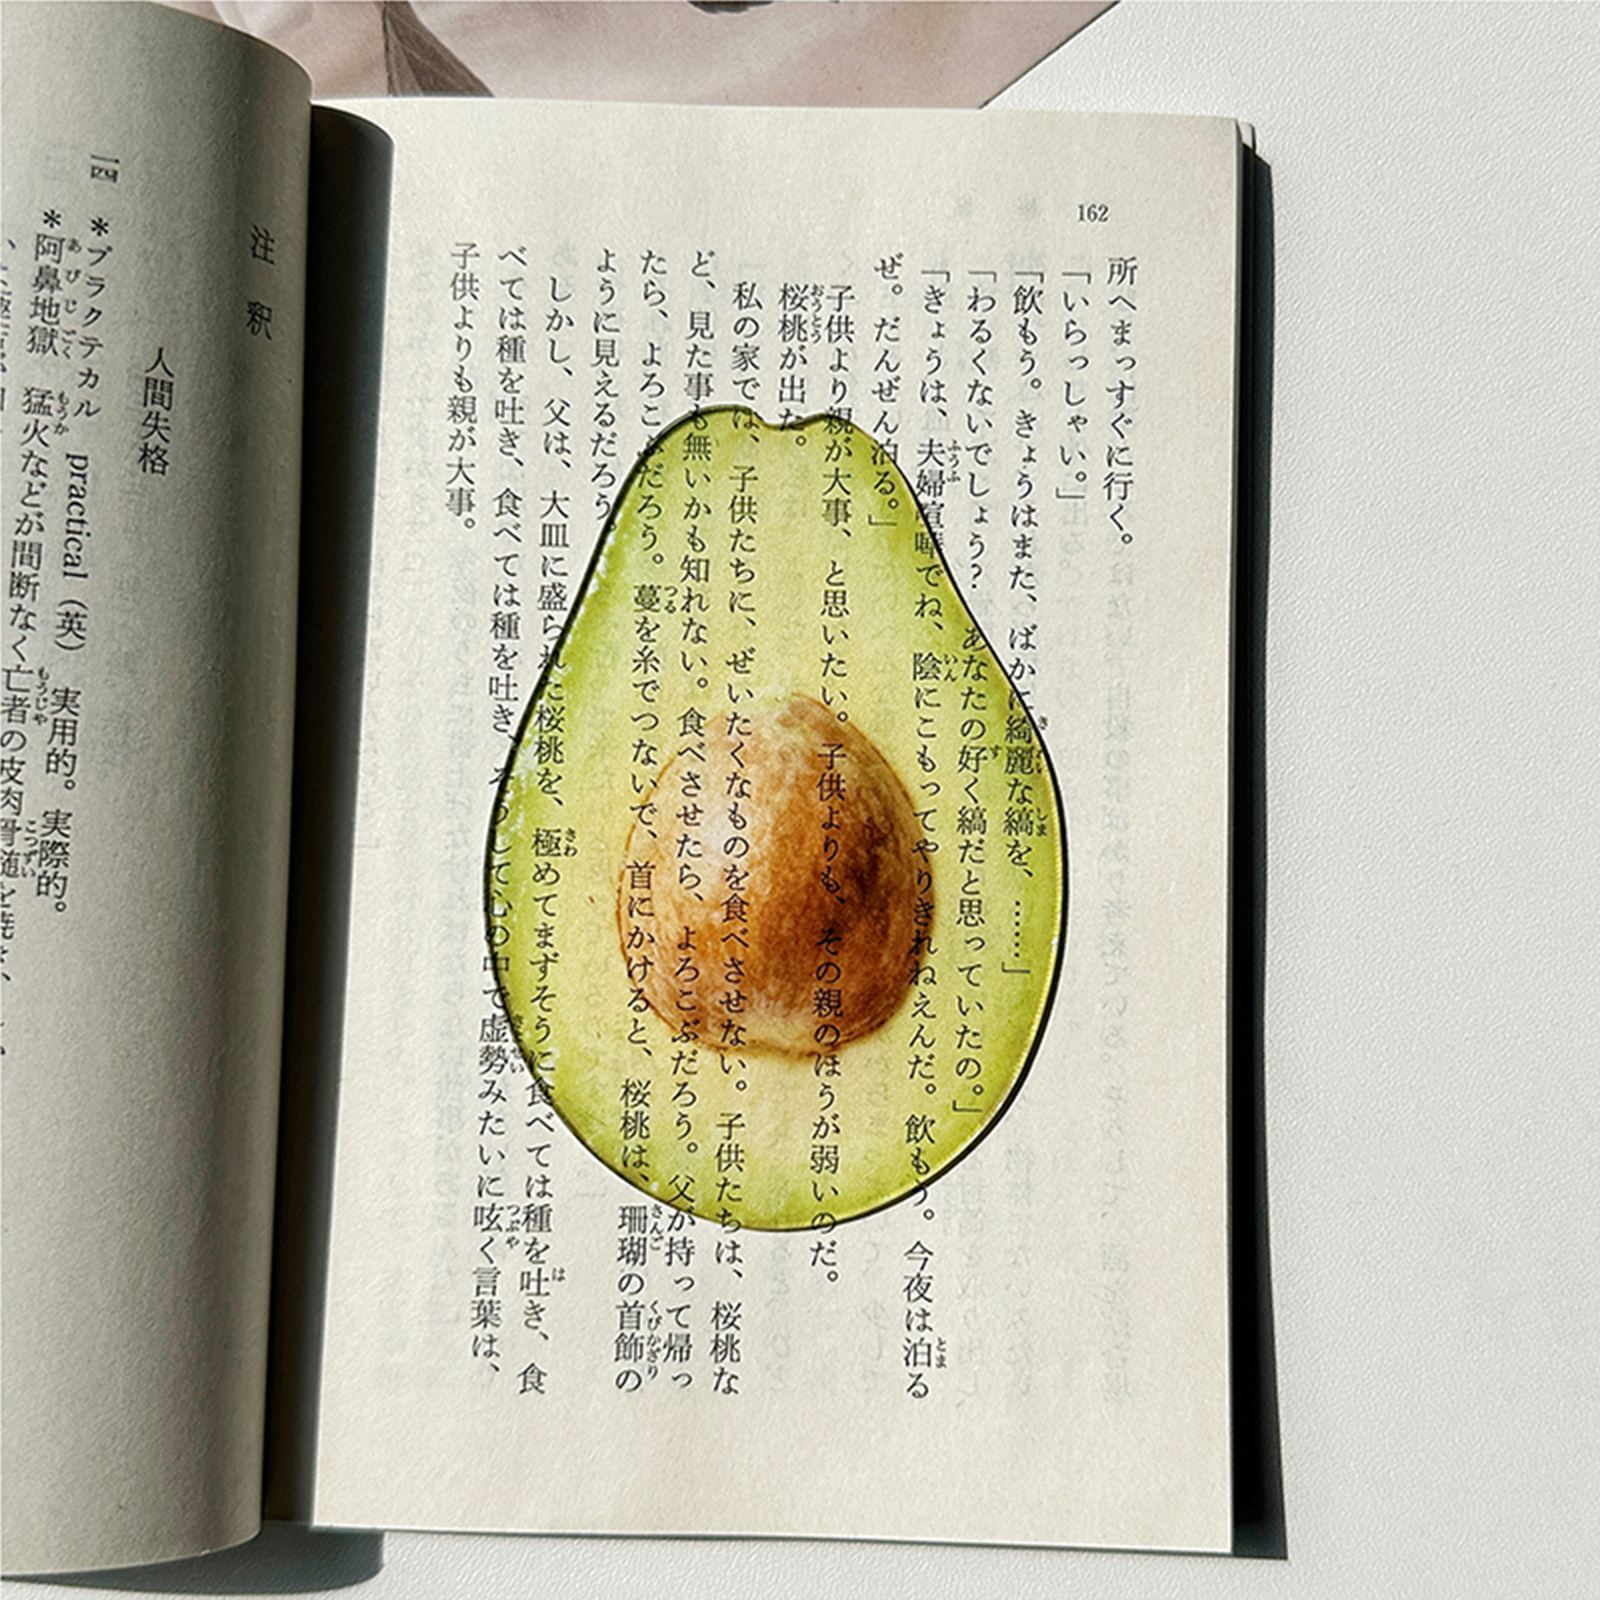 162
所へまっすぐに行く。
「いらっしゃい。」
「飲もう。きょうはまた、ばかに綺麗な縞を、……」
「わるくないでしょう? あなたの好く縞だと思っていたの。」
「きょうは、夫婦喧嘩でね、陰にこもってやりきれねえんだ。飲もう。今夜は泊る
ぜ。だんぜん泊る。」
子供より親が大事、と思いたい。子供よりも、その親のほうが弱いのだ。
桜桃が出た。
私の家では、子供たちに、ぜいたくなものを食べさせない。子供たちは、桜桃な
ど、見た事も無いかも知れない。食べさせたら、よろこぶだろう。父が持って帰っ
たら、よろこぶだろう。蔓を糸でつないで、首にかけると、桜桃は、珊瑚の首飾の
ように見えるだろう。
しかし、父は、大皿に盛られた桜桃を、極めてまずそうに食べては種を吐き、食
べては種を吐き、食べては種を吐き、そうして心の中で虚勢みたいに呟く言葉は、
子供よりも親が大事。
注釈
人間失格
一四 *プラクテカル practical（英） 実用的。実際的。
*阿鼻地獄 猛火などが間断なく亡者の皮肉骨髄を焼き、